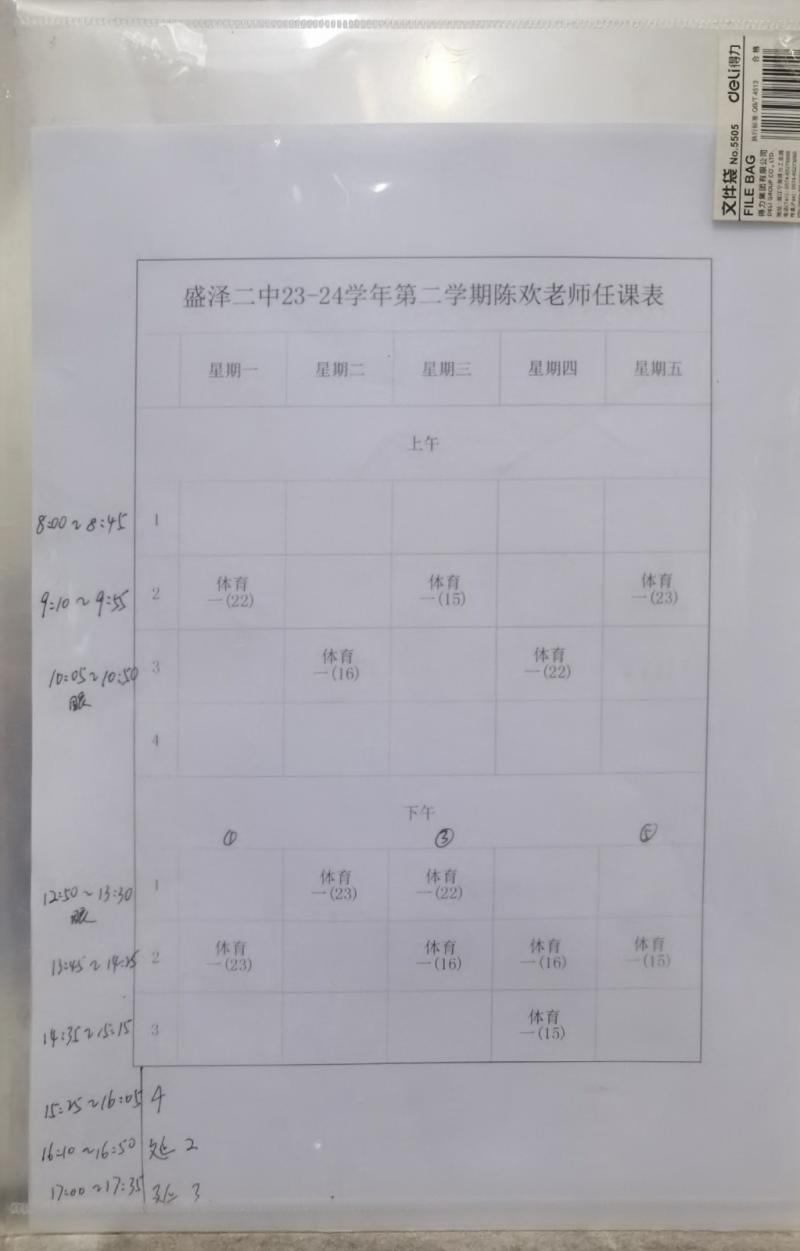 deli得力
合格
执行标准:QB/T 4513
文件袋 No.5505
FILE BAG
得力集团有限公司
DELI GROUP CO., LTD.
盛泽二中23-24学年第二学期陈欢老师任课表
星期一 星期二 星期三 星期四 星期五
上午
8:00~8:45 1
9:10~9:55 2 体育 体育 体育
一(22) 一(15) 一(23)
10:05~10:50 3 体育 体育
眼 一(16) 一(22)
4
下午
① ③ ⑤
12:50~13:30 1 体育 体育
眼 一(23) 一(22)
13:45~14:25 2 体育 体育 体育 体育
一(23) 一(16) 一(16) 一(15)
14:35~15:15 3 体育
一(15)
15:25~16:05 4
16:10~16:50 延 2
17:00~17:35 延 3